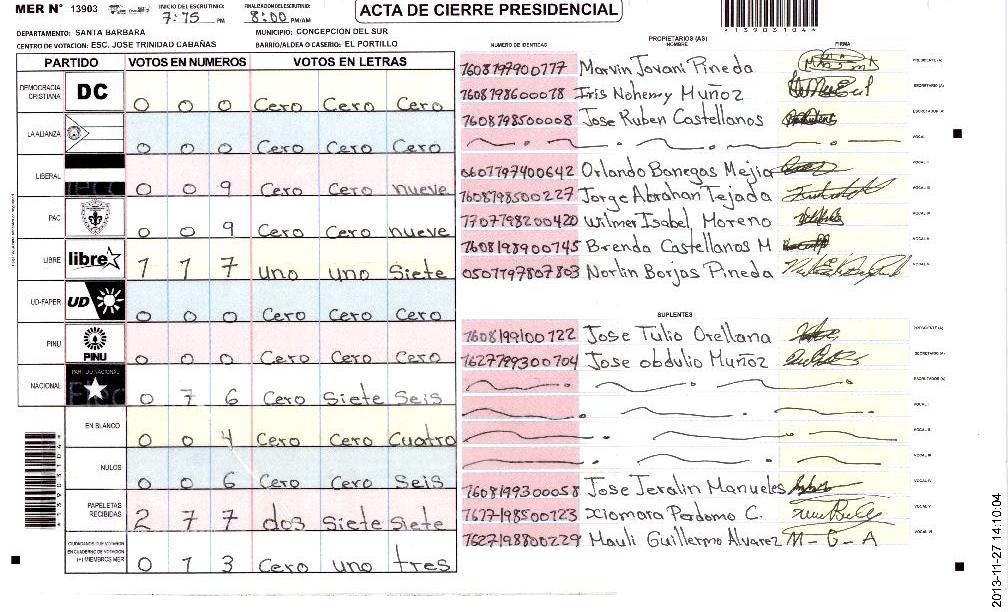 MER N° 13903
INICIO DEL ESCRUTINIO: 7:15 PM
FINALIZACION DEL ESCRUTINIO: 8:00 PM/AM
ACTA DE CIERRE PRESIDENCIAL
139031044
DEPARTAMENTO: SANTA BARBARA
MUNICIPIO: CONCEPCION DEL SUR
CENTRO DE VOTACION: ESC. JOSE TRINIDAD CABAÑAS
BARRIO/ALDEA O CASERIO: EL PORTILLO
PARTIDO VOTOS EN NUMEROS VOTOS EN LETRAS
DEMOCRACIA CRISTIANA DC 0 0 0 Cero Cero Cero
LA ALIANZA 0 0 0 Cero Cero Cero
LIBERAL 0 0 9 Cero Cero nueve
PAC 0 0 9 Cero Cero nueve
LIBRE libre 1 1 7 uno uno Siete
UD-FAPER UD 0 0 0 Cero Cero Cero
PINU PINU 0 0 0 Cero Cero Cero
NACIONAL PARTIDO NACIONAL 0 7 6 Cero Siete Seis
EN BLANCO 0 0 4 Cero Cero Cuatro
NULOS 0 0 6 Cero Cero Seis
PAPELETAS RECIBIDAS 2 7 7 dos Siete Siete
CIUDADANOS QUE VOTARON EN CUADERNO DE VOTACION (+) MIEMBROS MER 0 1 3 Cero uno tres
PROPIETARIOS (AS)
NUMERO DE IDENTIDAD NOMBRE FIRMA
1608197900177 Marvin Jovani Pineda PRESIDENTE (A)
1608198600078 Iris Nohemy Muñoz SECRETARIO (A)
1608198500008 Jose Ruben Castellanos ESCRUTADOR (A)
VOCAL I
0601197400642 Orlando Banegas Mejia VOCAL II
1608198500227 Jorge Abrahan Tejada VOCAL III
1707198200420 Wilmer Isabel Moreno VOCAL IV
1608198900145 Brenda Castellanos M VOCAL V
0501197807803 Norlin Borjas Pineda VOCAL VI
SUPLENTES
1608199100122 Jose Tulio Orellana PRESIDENTE (A)
1627199300104 Jose obdulio Muñoz SECRETARIO (A)
ESCRUTADOR (A)
VOCAL I
VOCAL II
VOCAL III
1608199300058 Jose Jeralin Manueles VOCAL IV
1617198500123 Xiomara Perdomo C. VOCAL V
1627198800229 Mauli Guillermo Alvarez M - G - A VOCAL VI
2013-11-27 14:10:04